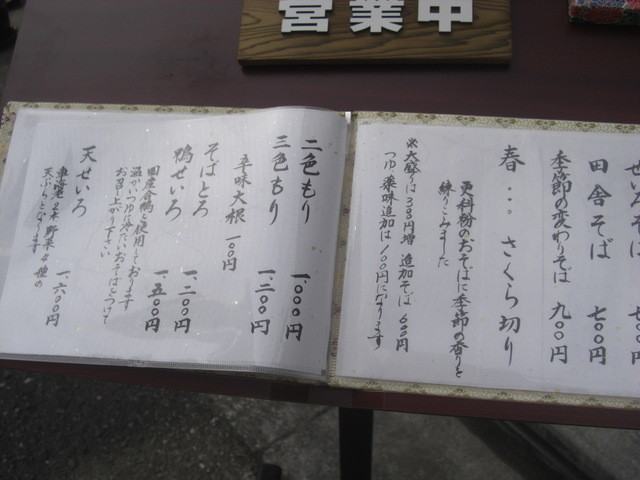 営業中
せいろそば
田舎そば 七〇〇円
季節の変わりそば 九〇〇円
春… さくら切り
更科粉のおそばに季節の香りを
練りこみました
※大盛りは300円増 追加そば 600円
つゆ・薬味追加は100円になります
二色もり 一、〇〇〇円
三色もり 一、二〇〇円
辛味大根 一〇〇円
そばとろ 一、二〇〇円
鴨せいろ 一、五〇〇円
国産合鴨を使用しております
温かいつゆに冷たいおそばをつけて
お召し上がり下さい
天せいろ 一、六〇〇円
車海老二本 野菜4種の
天ぷらとなります